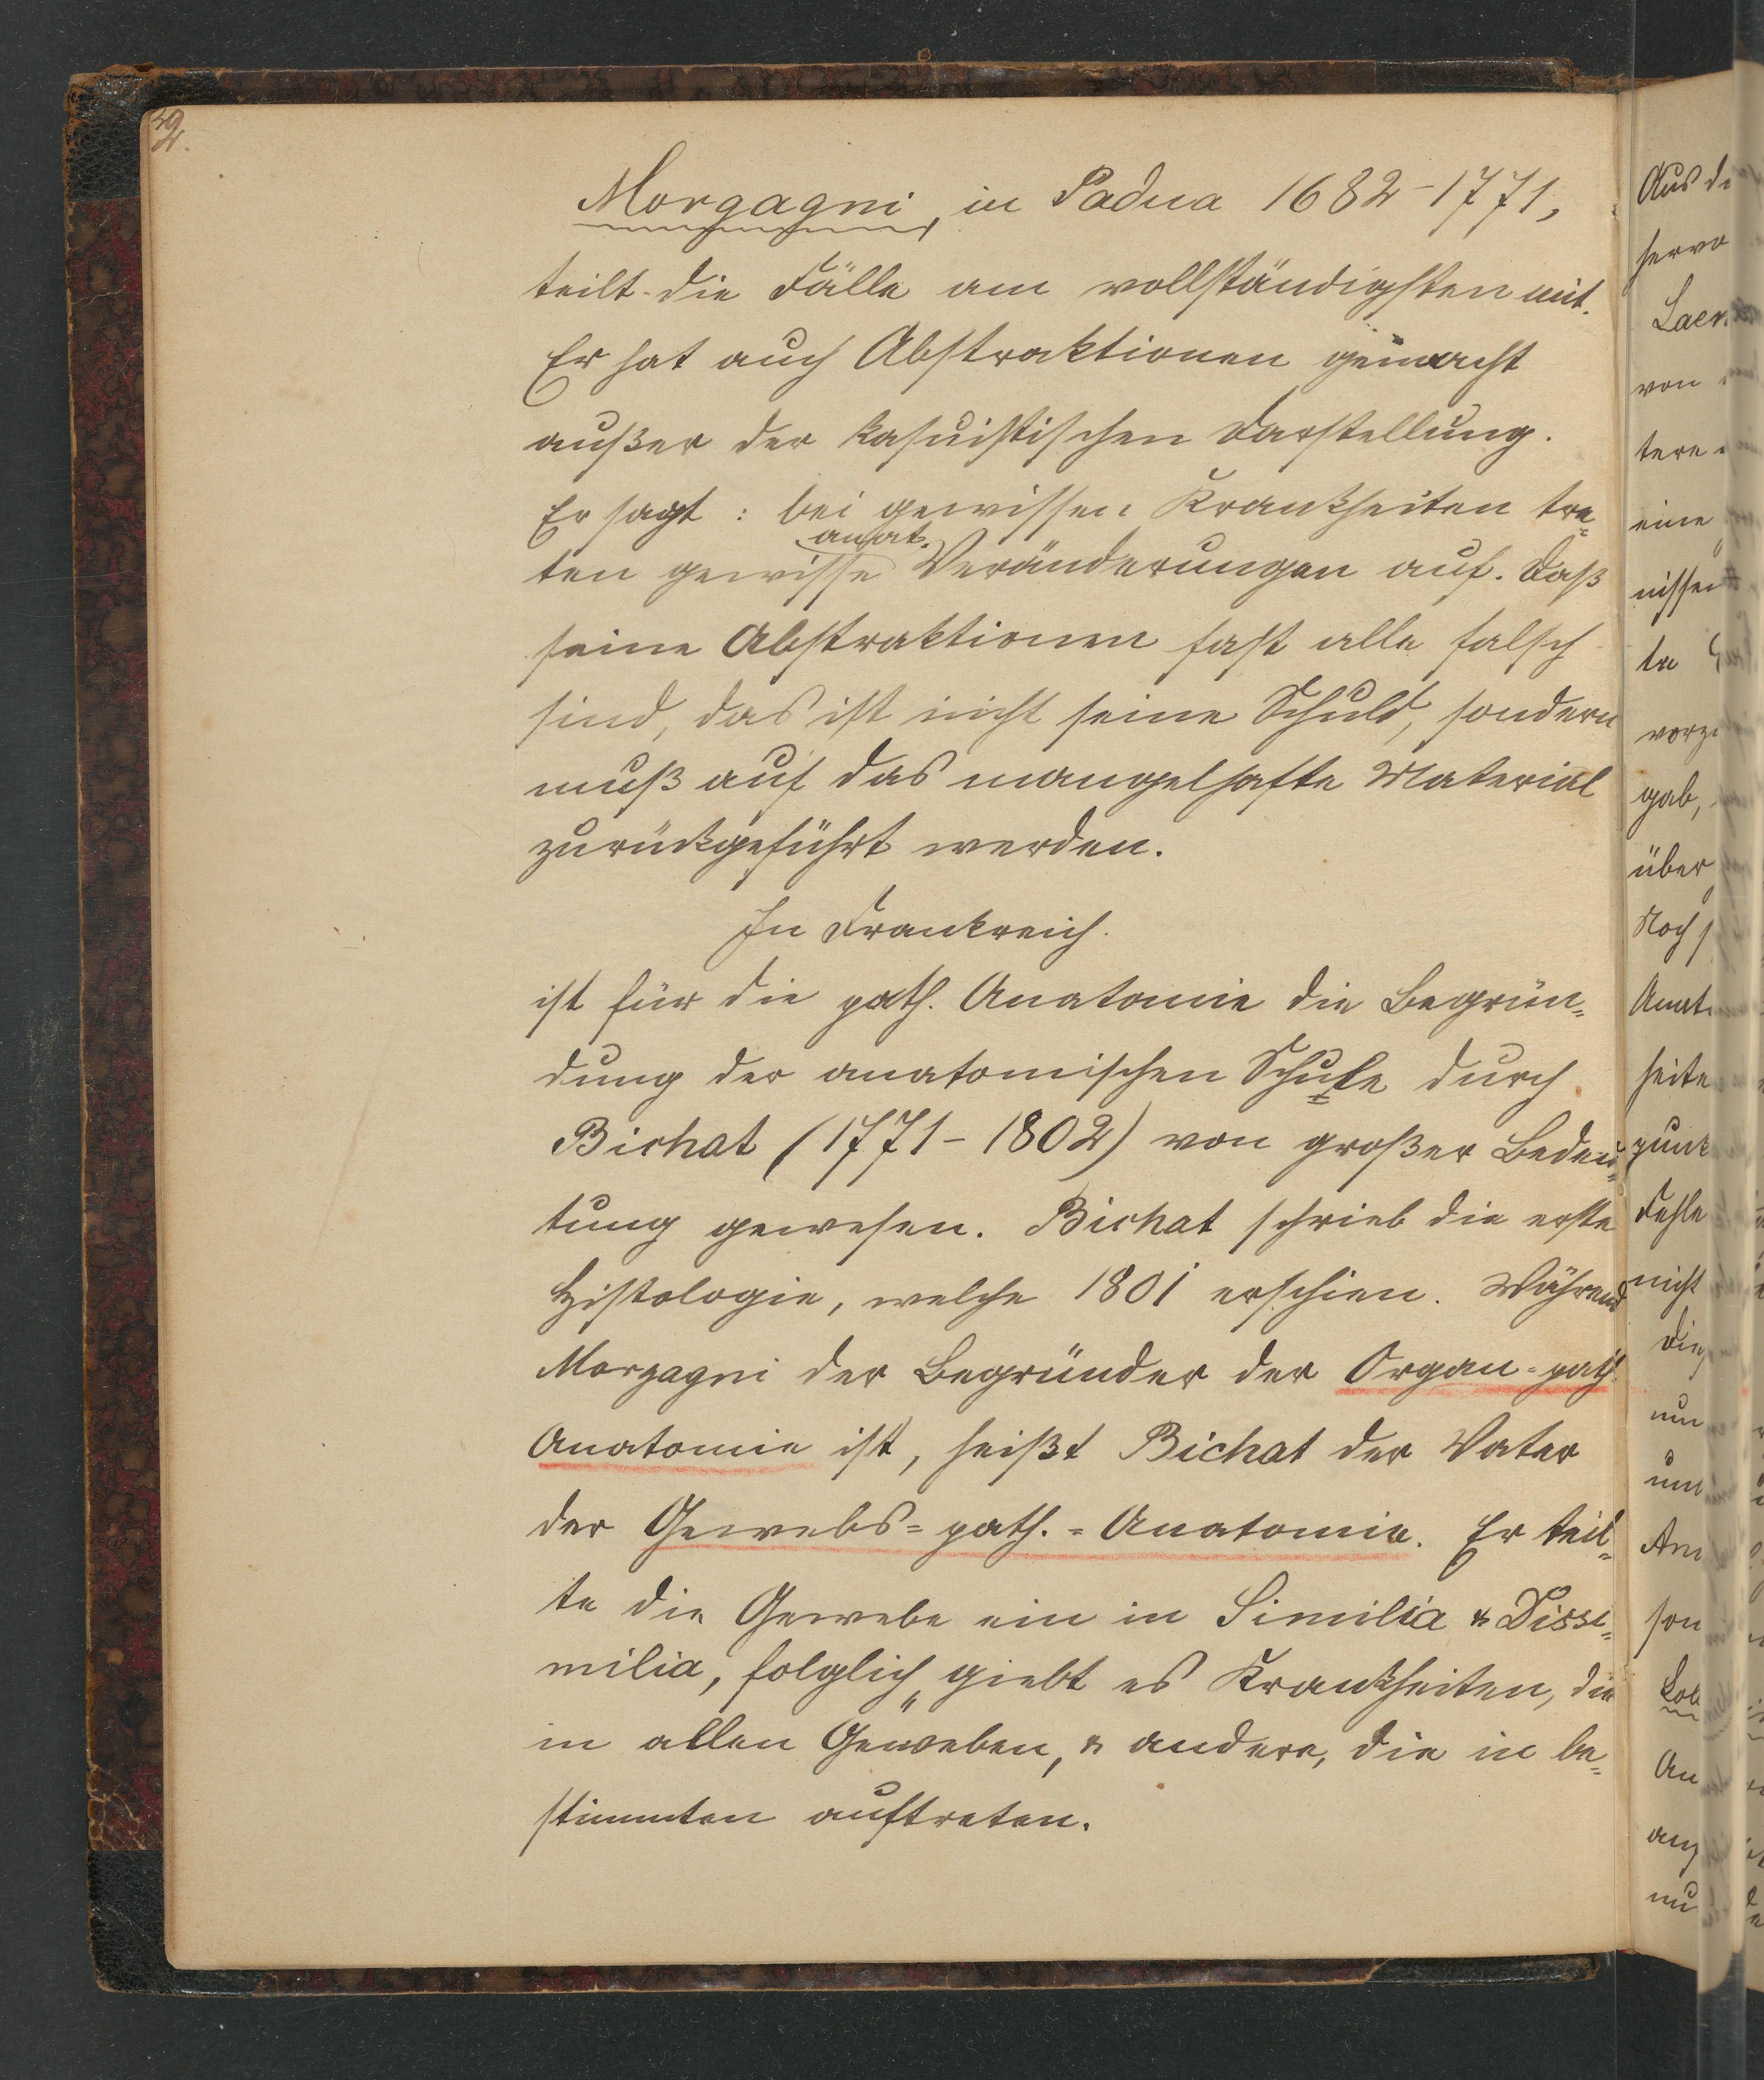 2.
Morgagni, in Padua 1682-1771,
teilt die Fälle am vollständigsten mit.
Er hat auch Abstraktionen gemacht
außer der kasuistischen Darstellung.
Er sagt: bei gewissen Krankheiten tre-
anat.
ten gewisse Veränderungen auf. Daß
seine Abstraktionen fast alle falsch
sind, das ist nicht seine Schuld, sondern
muß auf das mangelhafte Material
zurückgeführt werden.
In Frankreich.
ist für die path. Anatomie die Begrün-
dung der anatomischen Schule durch
Bichat (1771-1802) von großer Bedeu-
tung gewesen. Bichat schrieb die erste
Histologie, welche 1801 erschien. Während
Morgagni der Begründer der Organ-path.
Anatomie ist, heißt Bichat der Vater
der Gewebs-path.-Anatomie. Er teil-
te die Gewebe ein in Similia & Dissi-
milia, folglich giebt es Krankheiten, die
in allen Geweben, & andere, die in be-
stimmten auftreten.
Aus de
hervo
Laen
von
tere
eine
nissen
te
vorz
gab,
über
Noch
Anat
heite
punk
Fehle
nicht
die
um
und
Am
son
Lob
An
ang
nu